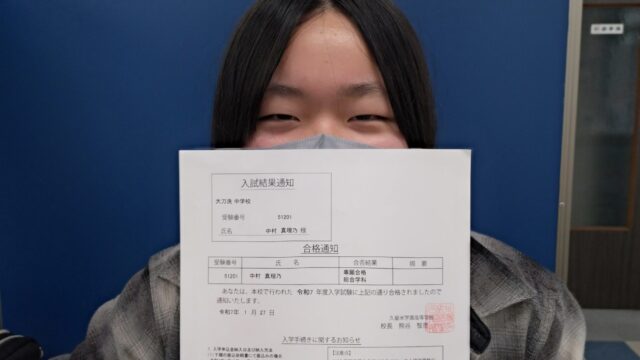 入試結果通知
大刀洗 中学校
受験番号 51201
氏名 中村 真理乃 様
合格通知
受験番号 氏 名 合否結果 摘 要
51201 中村 真理乃 専願合格
総合学科
あなたは、本校で行われた 令和7 年度入学試験に上記の通り合格されましたので
通知いたします。
令和7年 1 月 27 日
久留米学園高等学校
校長 熊谷 智恵
入学手続きに関するお知らせ